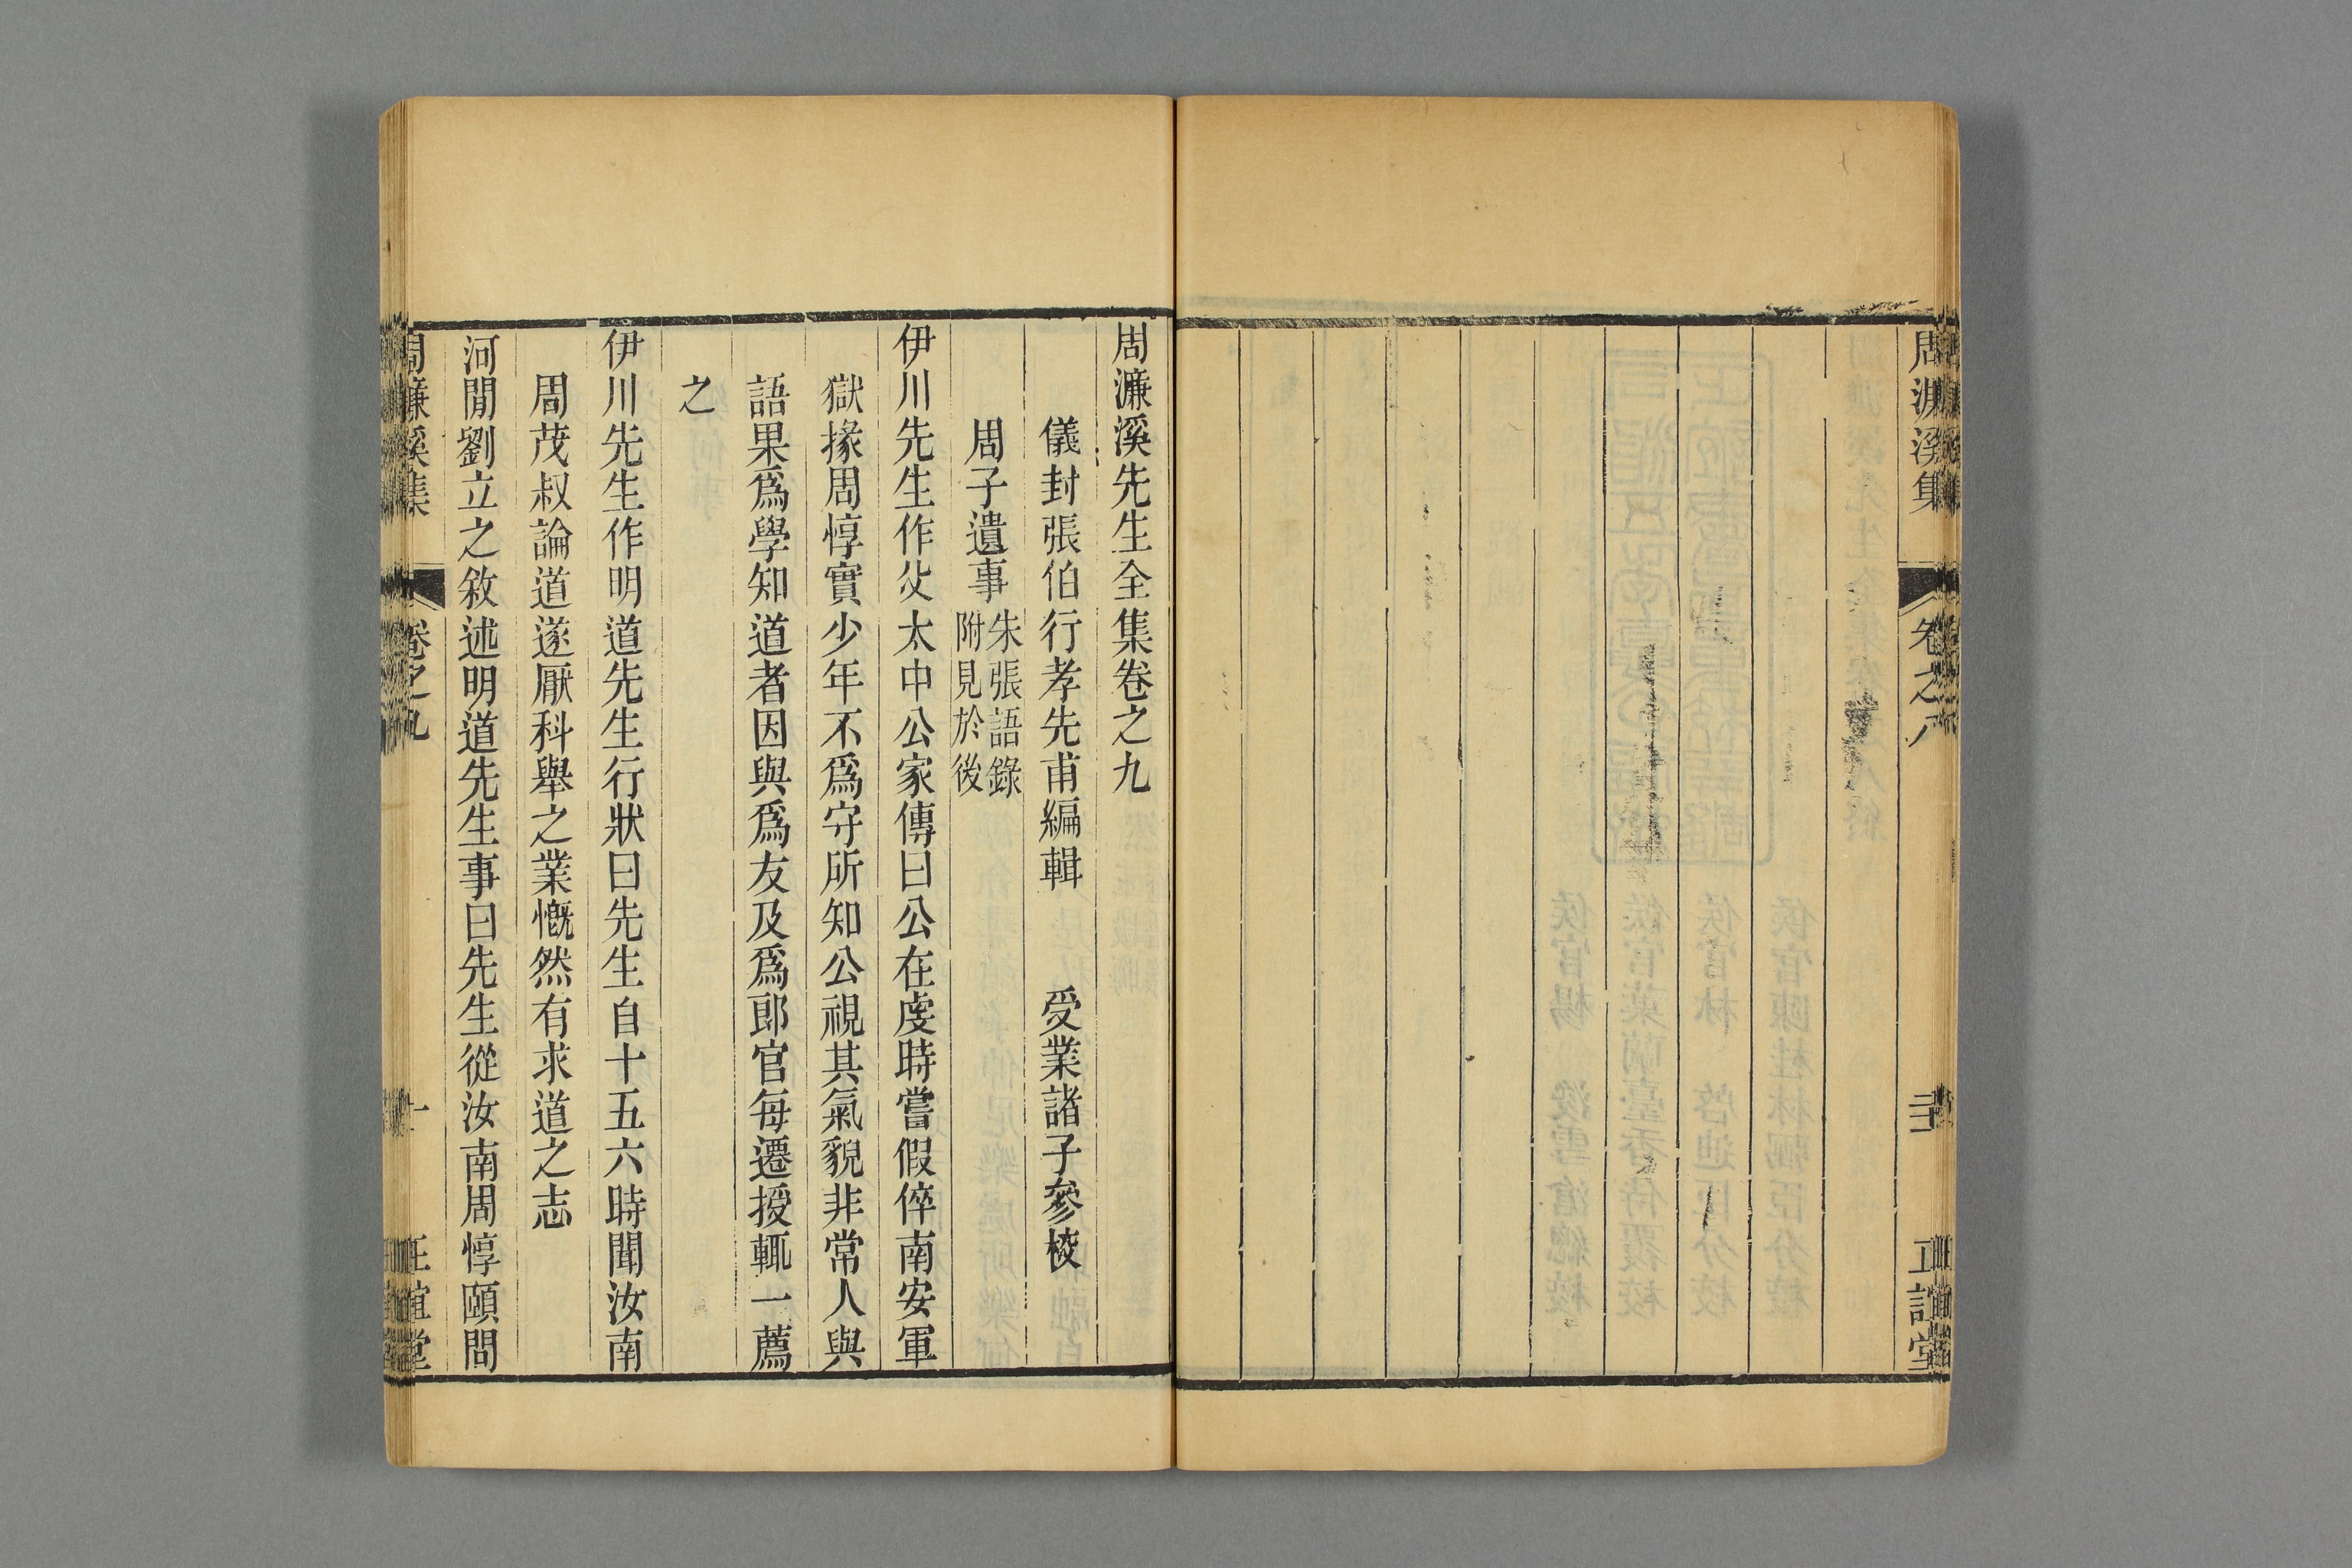 周濂溪集
卷之八
正誼堂
周濂溪先生全集卷之九
儀封張伯行孝先甫編輯 受業諸子參校
周子遺事 朱張語錄
附見於後
伊川先生作父太中公家傳曰公在虔時嘗假倅南安軍
獄掾周惇實少年不爲守所知公視其氣貌非常人與
語果爲學知道者因與爲友及爲郎官每遷授輒一薦
之
伊川先生作明道先生行狀曰先生自十五六時聞汝南
周茂叔論道遂厭科舉之業慨然有求道之志
河間劉立之敘述明道先生事曰先生從汝南周惇頤問
周濂溪集
卷之九
一
正誼堂